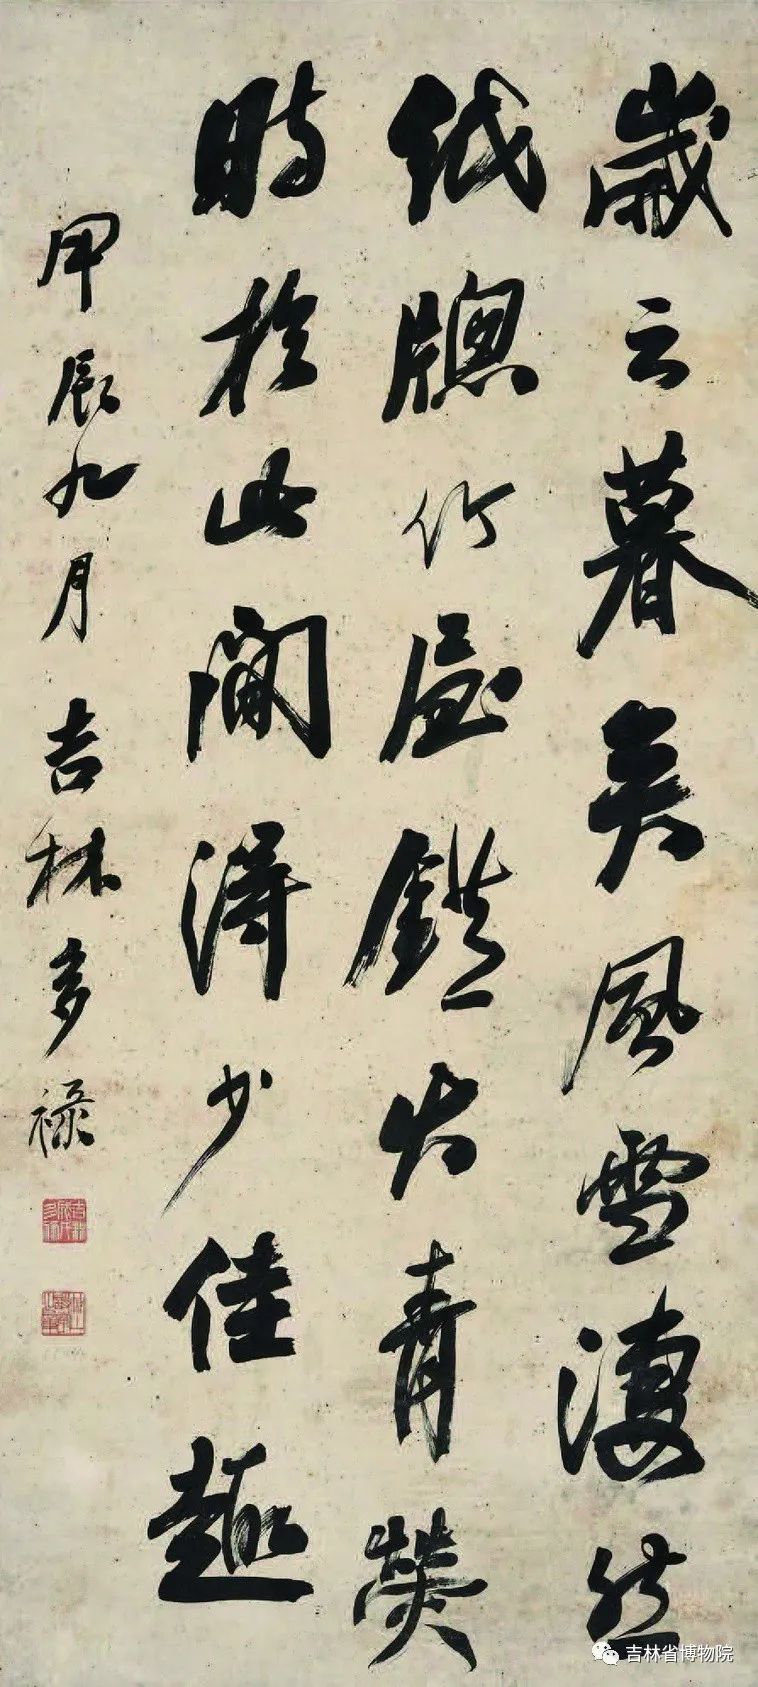 歲云暮矣風雪淒然
紙牕竹屋鐙火青熒
時於此間得少佳趣
甲辰九月吉林多祿
吉林省博物院